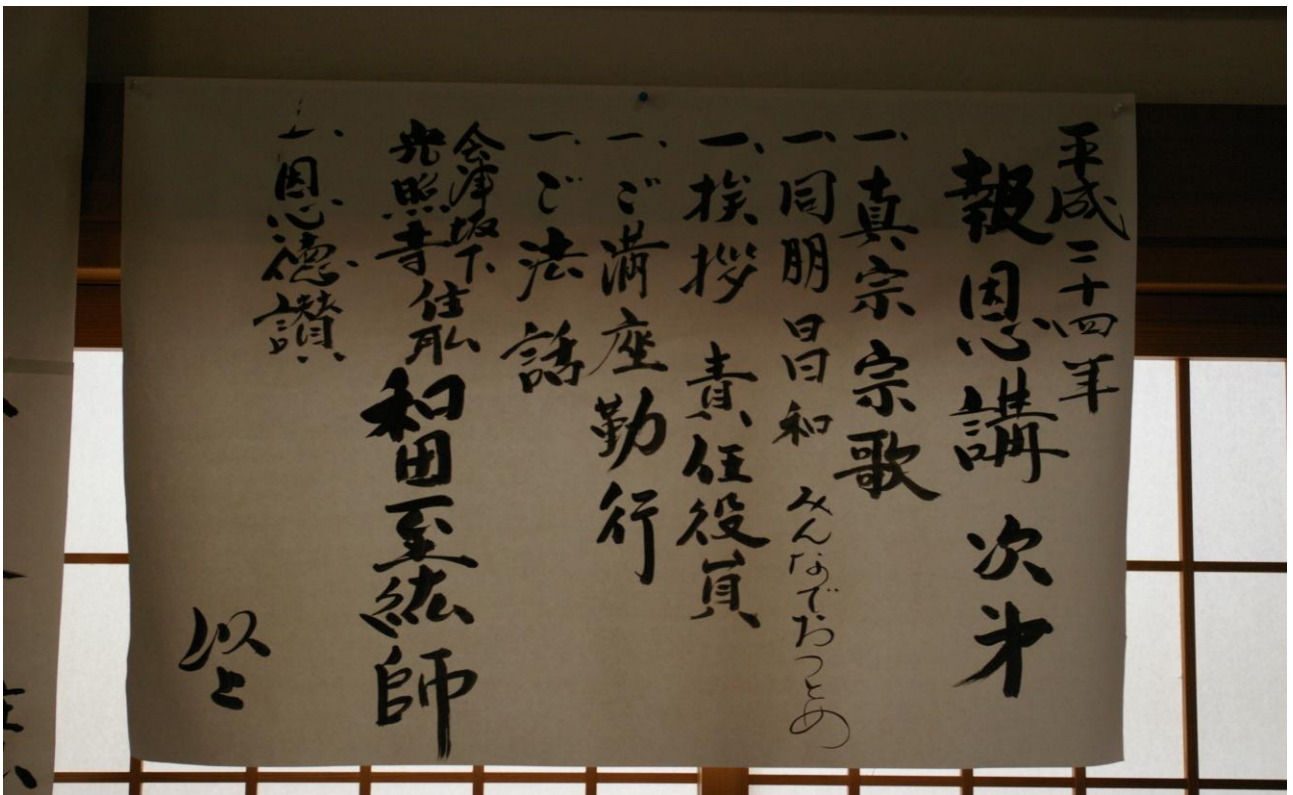 平成二十四年
報恩講 次第
一、真宗宗歌
一、同朋唱和 みんなでおつとめ
一、挨拶 責任役員
一、ご満座勤行
一、ご法話
会津坂下
光照寺 住職 和田至紘師
一、恩徳讃
以上